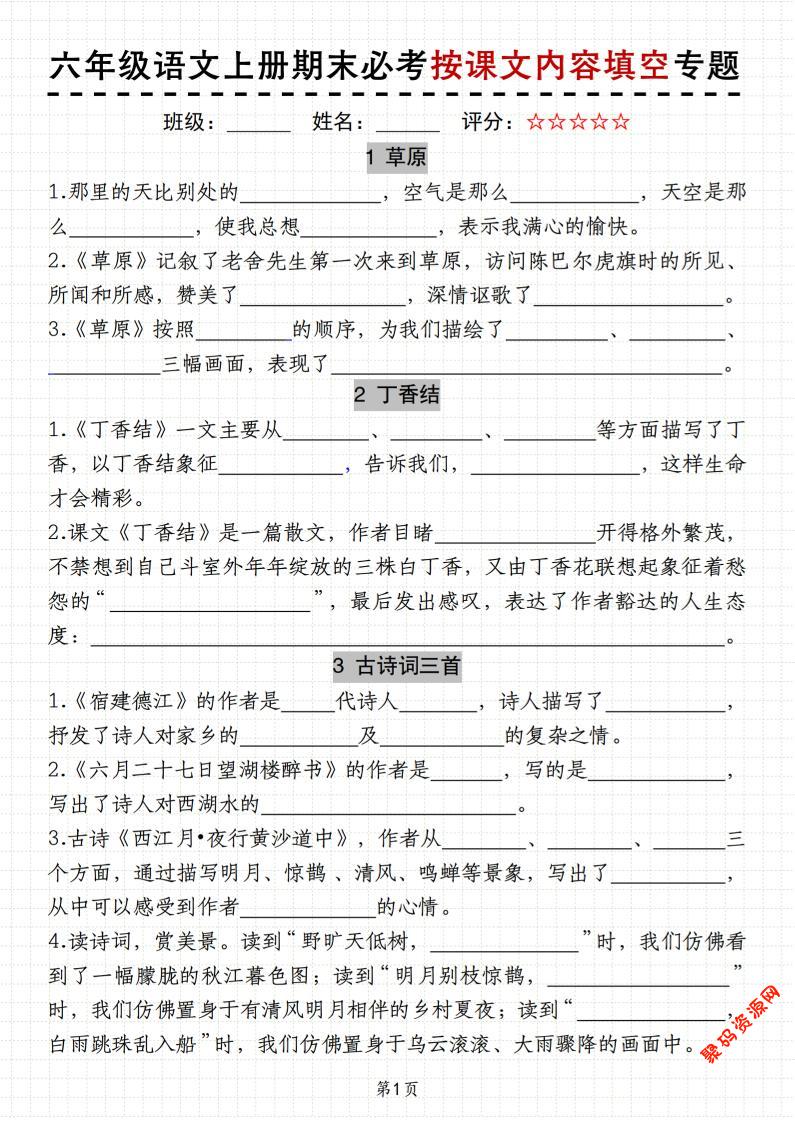 六年级语文上册期末必考按课文内容填空专题
班级：______ 姓名：______ 评分：☆☆☆☆☆
1 草原
1.那里的天比别处的____________，空气是那么____________，天空是那
么____________，使我总想____________，表示我满心的愉快。
2.《草原》记叙了老舍先生第一次来到草原，访问陈巴尔虎旗时的所见、
所闻和所感，赞美了______________，深情讴歌了________________。
3.《草原》按照________的顺序，为我们描绘了_________、________、
__________三幅画面，表现了__________________________________。
2 丁香结
1.《丁香结》一文主要从________、________、________等方面描写了丁
香，以丁香结象征___________，告诉我们，______________，这样生命
才会精彩。
2.课文《丁香结》是一篇散文，作者目睹______________开得格外繁茂，
不禁想到自己斗室外年年绽放的三株白丁香，又由丁香花联想起象征着愁
怨的“__________________”，最后发出感叹，表达了作者豁达的人生态
度：________________________________________________________。
3 古诗词三首
1.《宿建德江》的作者是_____代诗人_______，诗人描写了__________，
抒发了诗人对家乡的__________及___________的复杂之情。
2.《六月二十七日望湖楼醉书》的作者是______，写的是____________，
写出了诗人对西湖水的______________________。
3.古诗《西江月•夜行黄沙道中》，作者从_______、_______、_______三
个方面，通过描写明月、惊鹊 、清风、鸣蝉等景象，写出了__________，
从中可以感受到作者____________的心情。
4.读诗词，赏美景。读到“野旷天低树，_____________”时，我们仿佛看
到了一幅朦胧的秋江暮色图；读到“明月别枝惊鹊，________________”
时，我们仿佛置身于有清风明月相伴的乡村夏夜；读到“_____________，
白雨跳珠乱入船”时，我们仿佛置身于乌云滚滚、大雨骤降的画面中。
聚码资源网
第1页